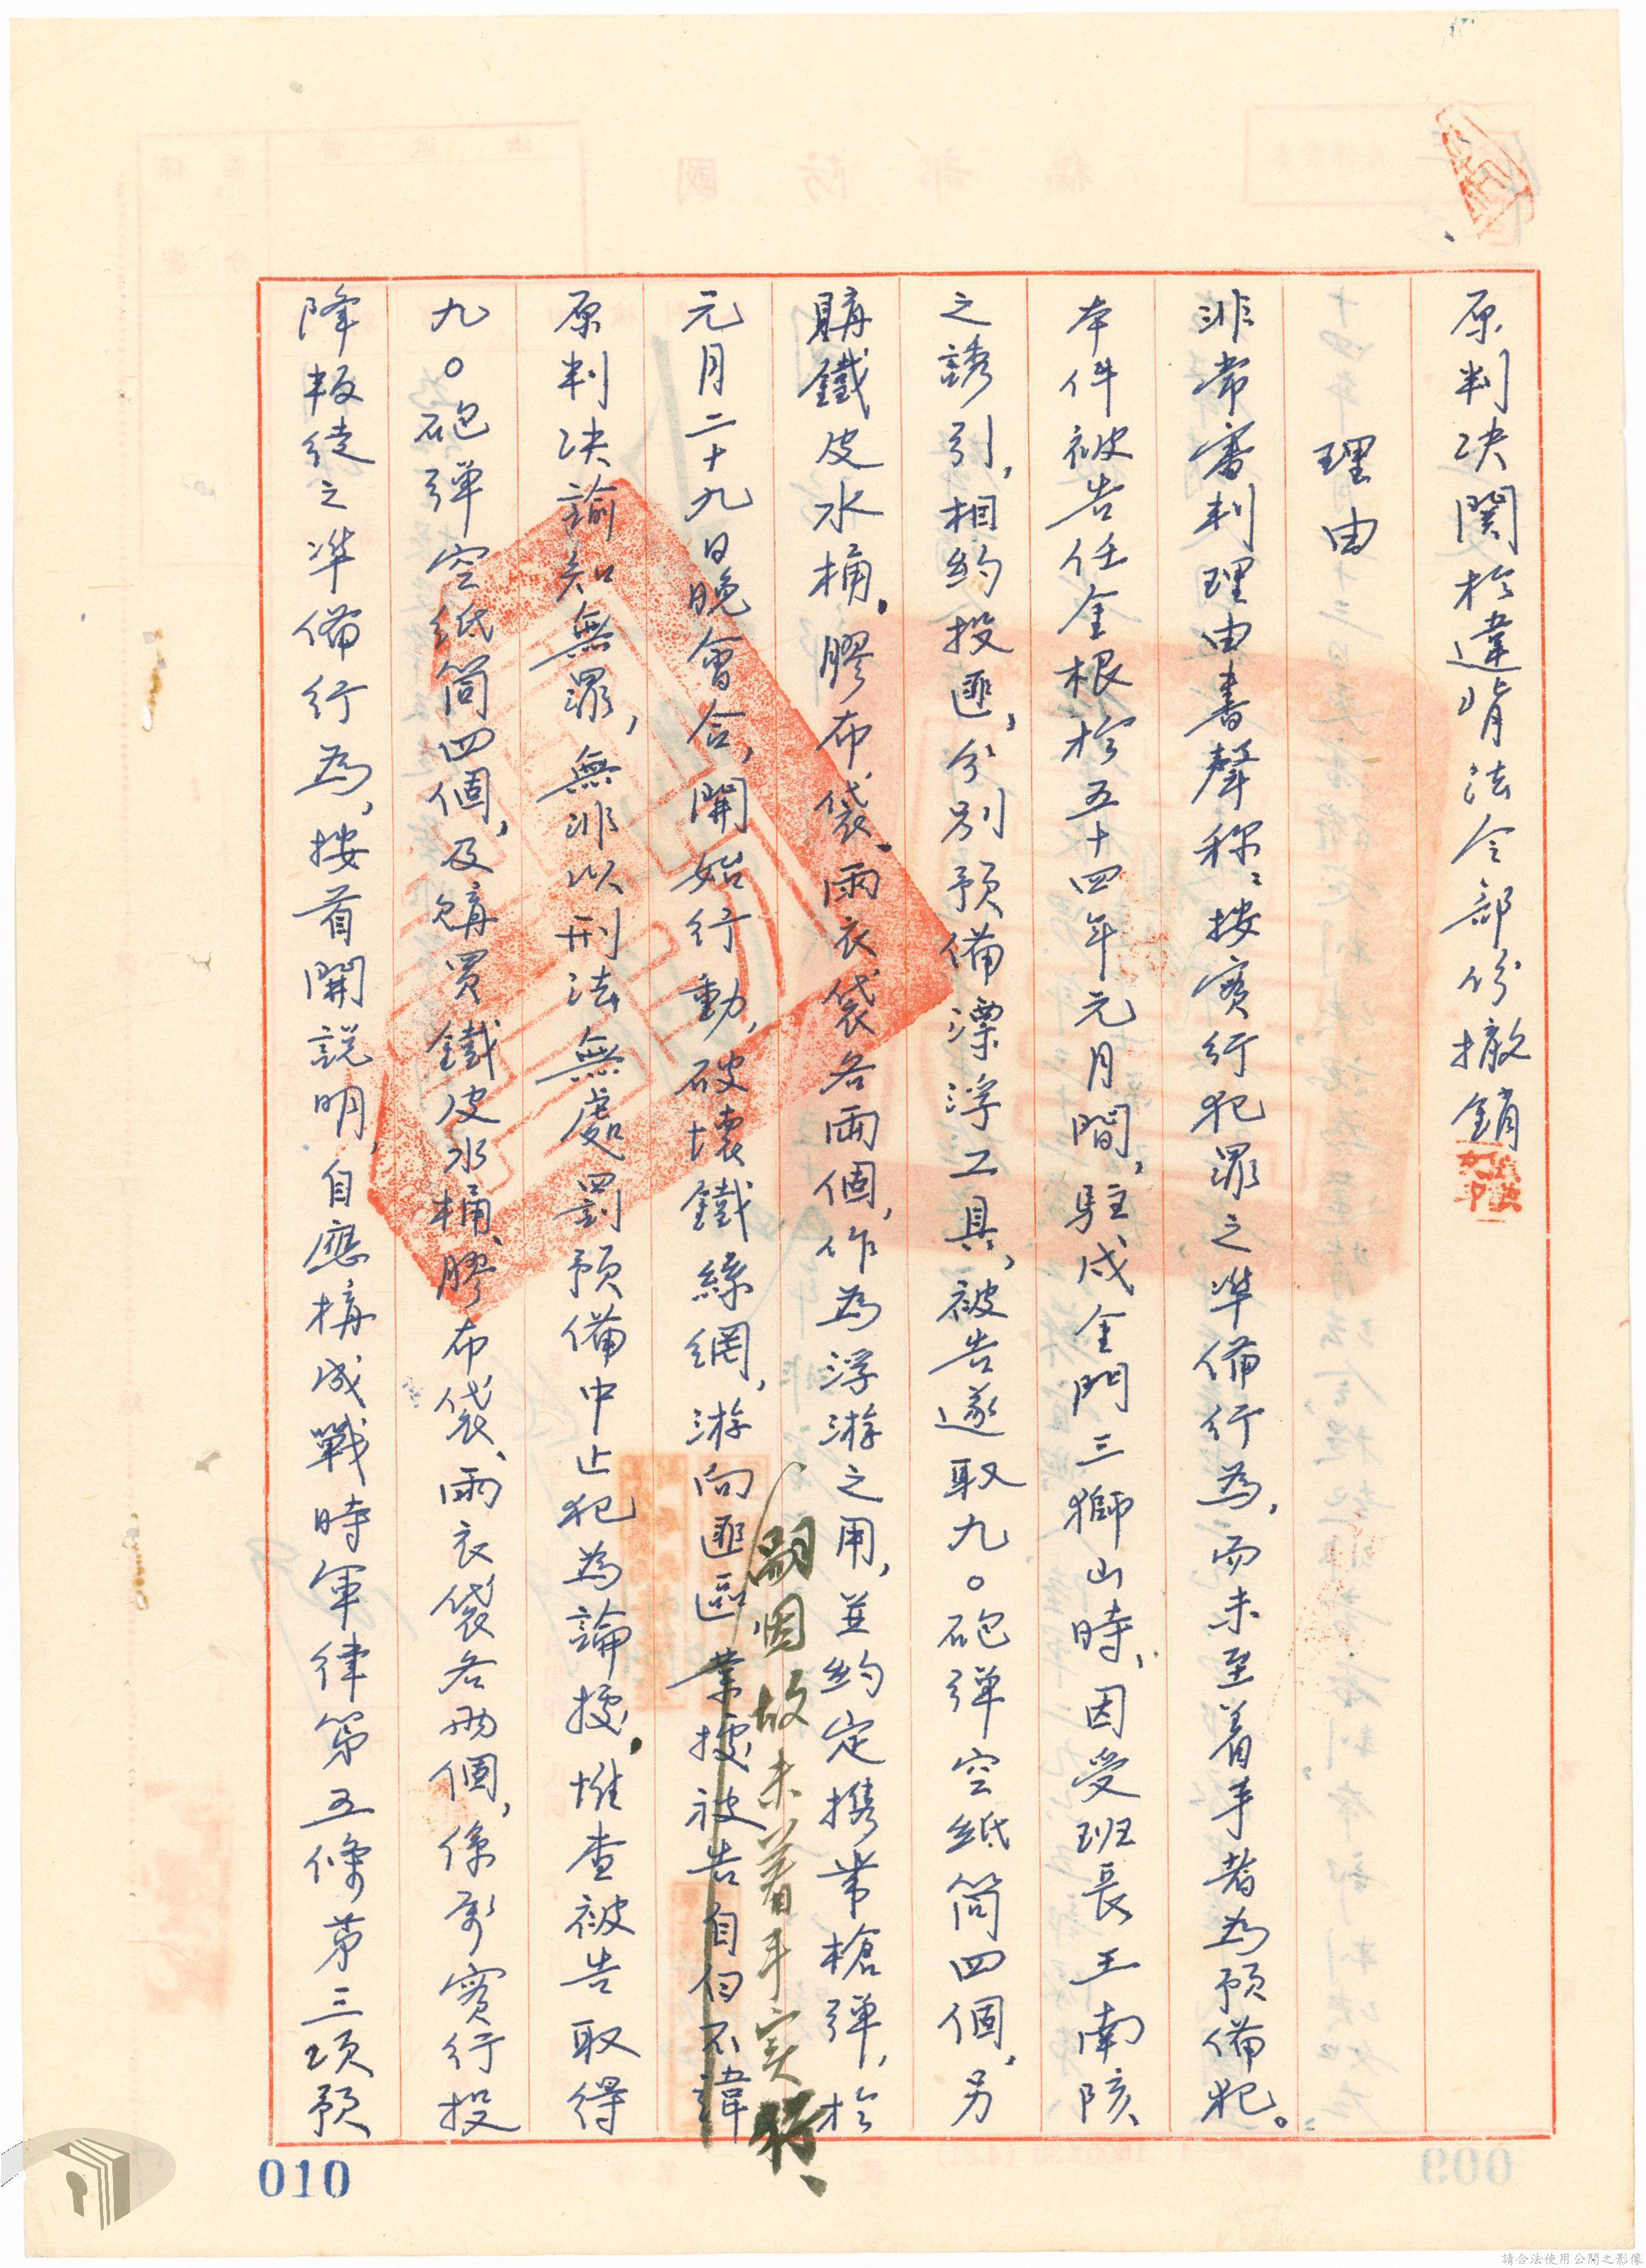 原判決関於違背法令部份撤銷
理由
非常審判理由書聲称：按實行犯罪之準備行為，而未至着手者為預備犯。
本件被告任金根於五十四年元月間，駐戍金門三獅山時，因受班長王南陔
之誘引，相約投匪，分別預備漂浮工具，被告遂取九〇砲弹空紙筒四個，另
購鐵皮水桶、膠布袋、雨衣袋各兩個，作為浮游之用，並約定携带槍弹，於
元月二十九日晚會合，開始行動，破壞鐵絲網，游向匪區，業據被告自白不諱
嗣因故未着手实行、
原判决諭知無罪，無非以刑法無處罰預備中止犯為論據，惟查被告取得
九〇砲弹空紙筒四個，及購買鐵皮水桶、膠布袋、雨衣袋各兩個，係为實行投
降叛徒之準備行為，按首開説明，自應構成戰時軍律第五條第三項預
010
009
請合法使用公開之影像